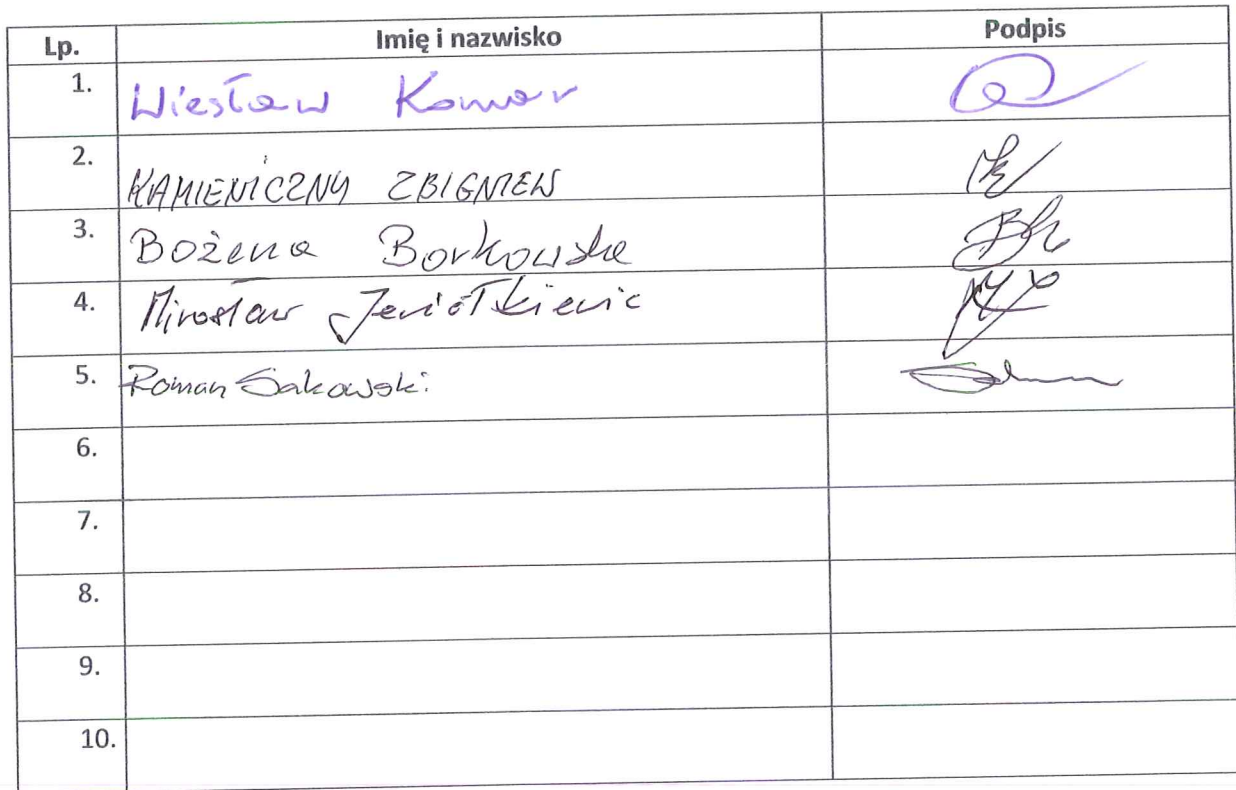 Lp. Imię i nazwisko Podpis
1. Wiesław Komar
2. KAMIENICZNY ZBIGNIEW
3. BOŻENA Borkowska
4. Mirosław
5. Roman Sakowski
6.
7.
8.
9.
10.